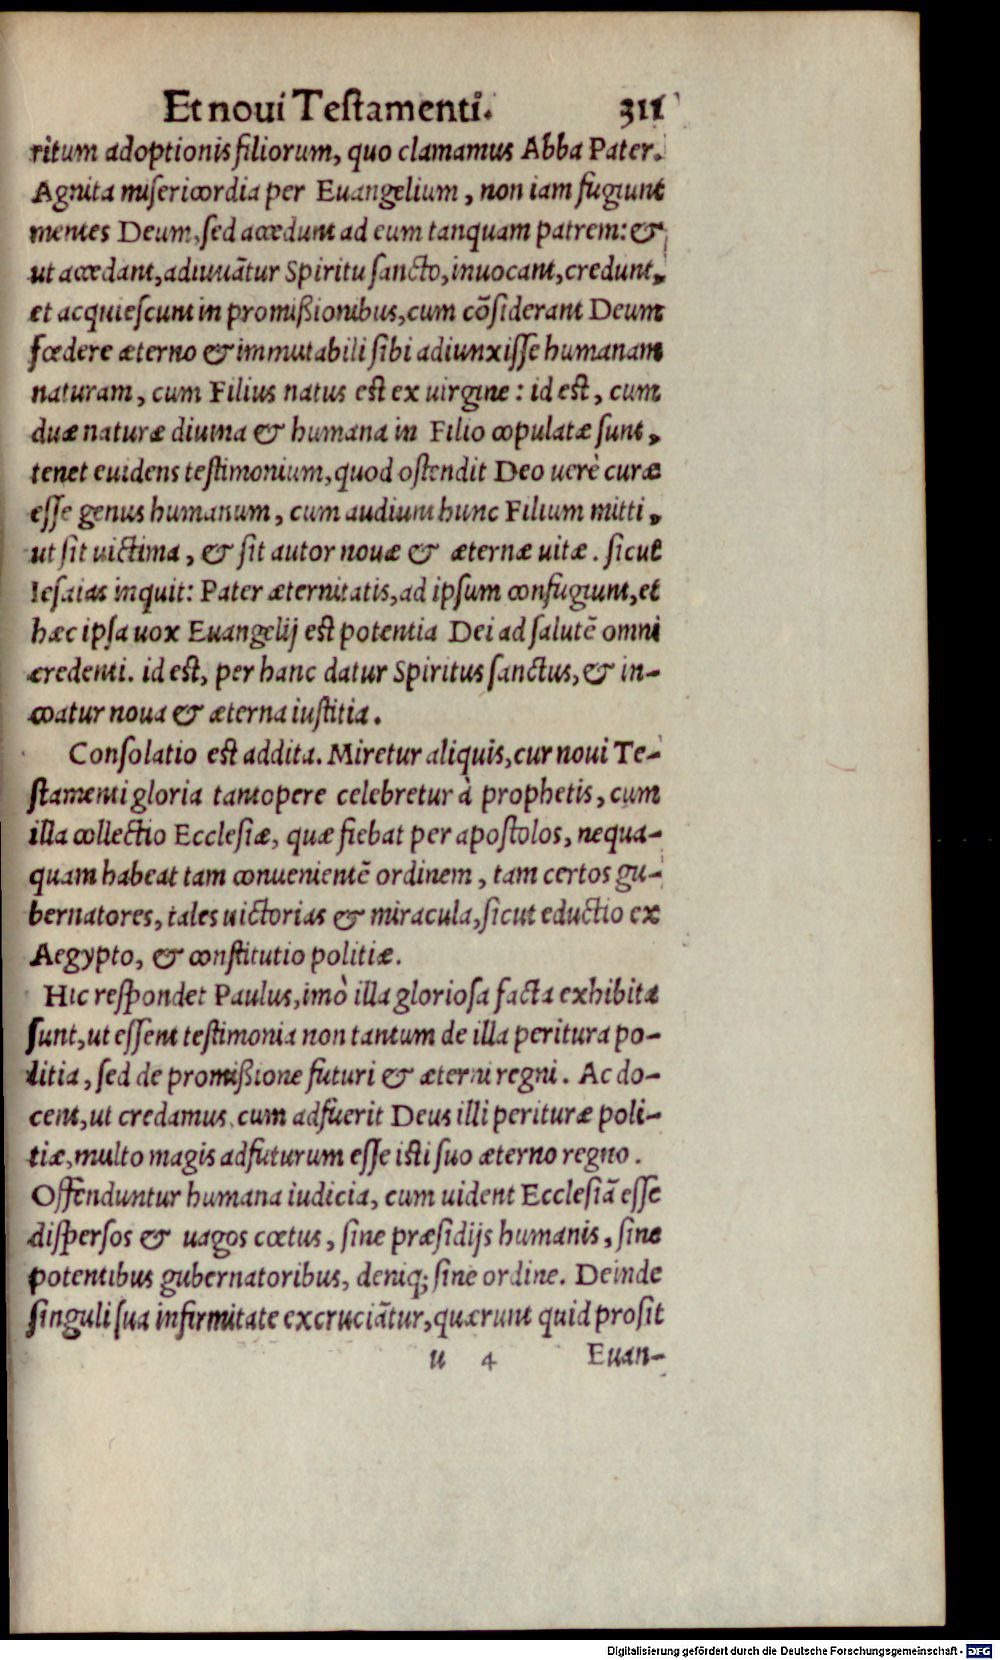 Et noui Testamenti. 311
ritum adoptionis filiorum, quo clamamus Abba Pater.
Agnita misericordia per Euangelium, non iam fugiunt
mentes Deum, sed accedunt ad eum tanquam patrem: &
ut accedant, adiuuātur Spiritu sancto, inuocant, credunt,
et acquiescunt in promißionibus, cum cōsiderant Deum
fœdere æterno & immutabili sibi adiunxisse humanam
naturam, cum Filius natus est ex uirgine: id est, cum
duæ naturæ diuina & humana in Filio copulatæ sunt,
tenet euidens testimonium, quod ostendit Deo uerè curæ
esse genus humanum, cum audiunt hunc Filium mitti,
ut sit uictima, & sit autor nouæ & æternæ uitæ. sicut
Iesaias inquit: Pater æternitatis, ad ipsum confugiunt, et
hæc ipsa uox Euangelij est potentia Dei ad salutē omni
credenti. id est, per hanc datur Spiritus sanctus, & in-
coatur noua & æterna iustitia.
Consolatio est addita. Miretur aliquis, cur noui Te-
stamenti gloria tantopere celebretur à prophetis, cum
illa collectio Ecclesiæ, quæ fiebat per apostolos, nequa-
quam habeat tam conuenientē ordinem, tam certos gu-
bernatores, tales uictorias & miracula, sicut eductio ex
Aegypto, & constitutio politiæ.
Hic respondet Paulus, imò illa gloriosa facta exhibita
sunt, ut essent testimonia non tantum de illa peritura po-
litia, sed de promißione futuri & æterni regni. Ac do-
cent, ut credamus, cum adfuerit Deus illi perituræ poli-
tiæ, multo magis adfuturum esse isti suo æterno regno.
Offenduntur humana iudicia, cum uident Ecclesiā esse
dispersos & uagos cœtus, sine præsidijs humanis, sine
potentibus gubernatoribus, deniq; sine ordine. Deinde
singuli sua infirmitate excruciātur, quærunt quid prosit
u 4 Euan-
Digitalisierung gefördert durch die Deutsche Forschungsgemeinschaft - DFG